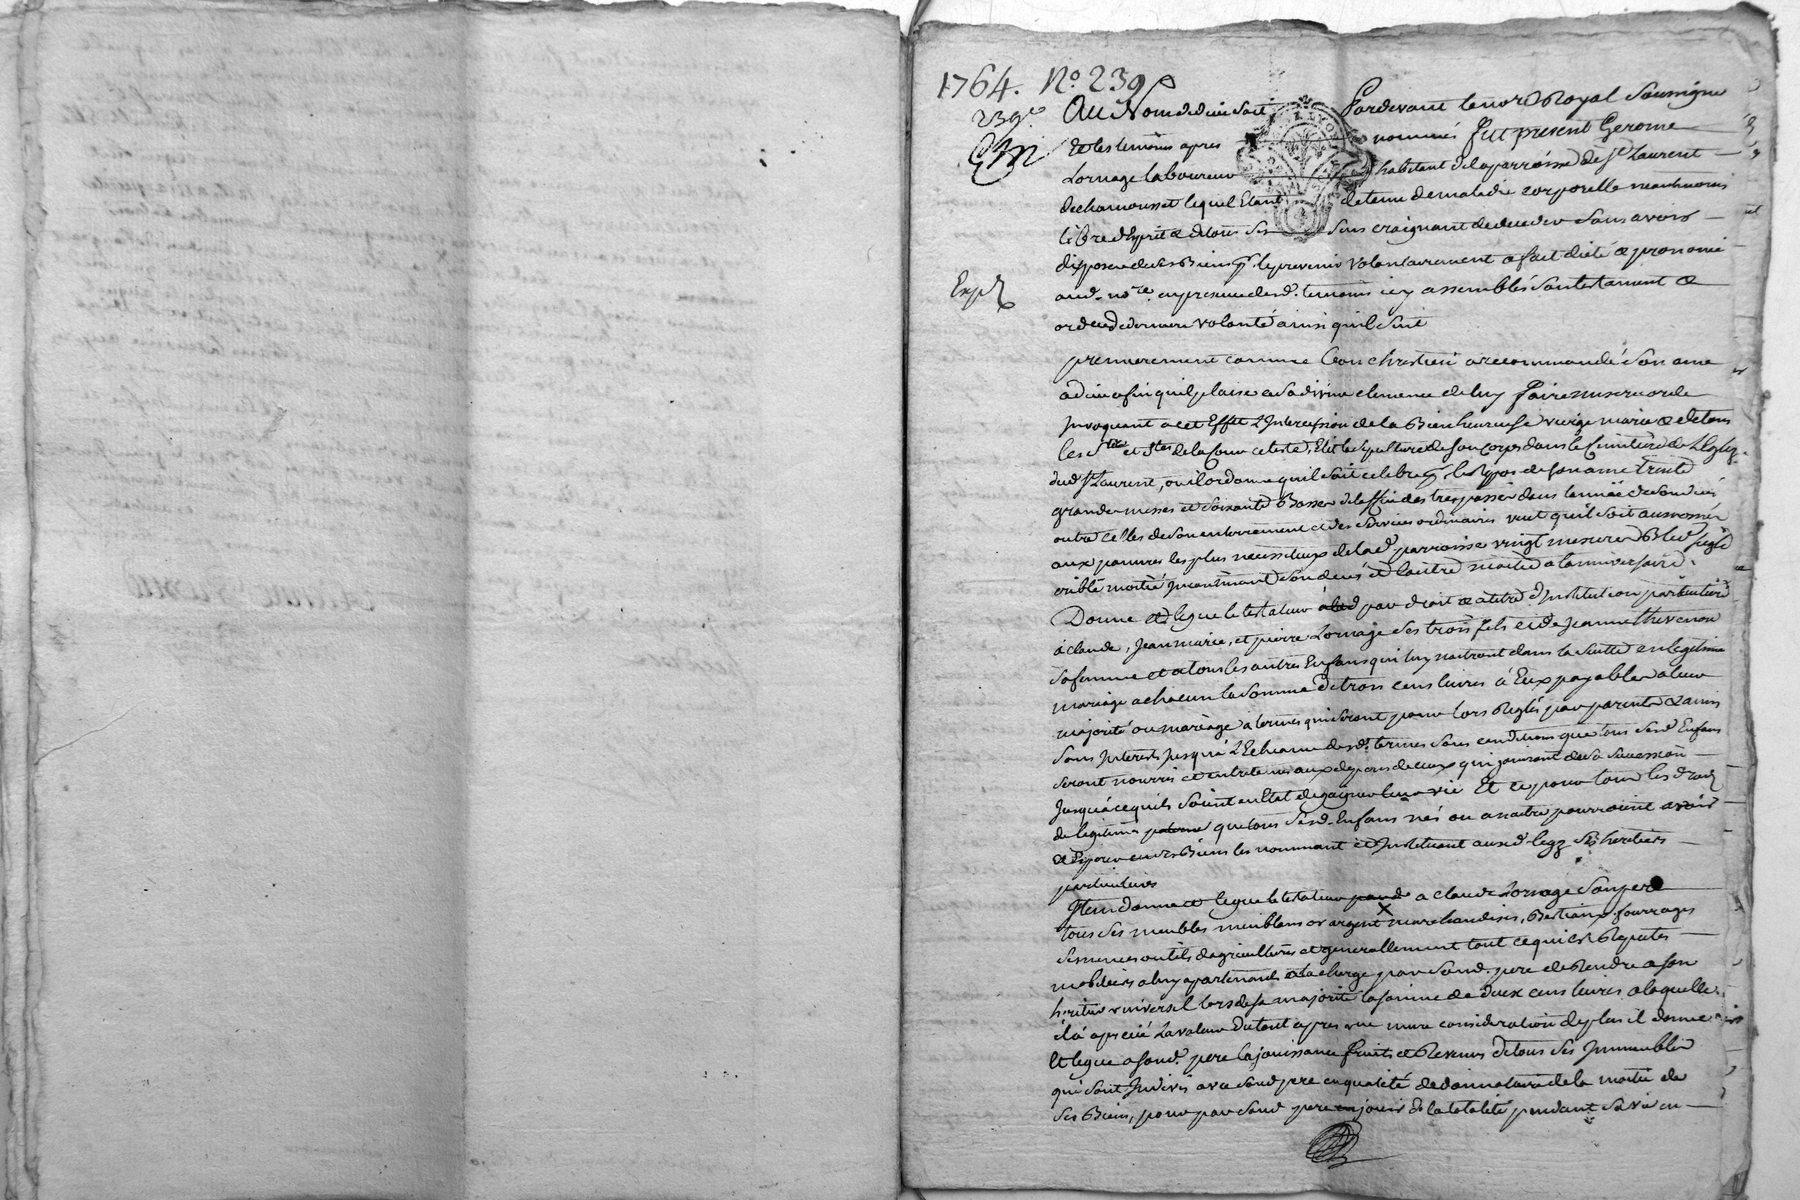 1764. No. 239
239e
Au Nom de dieu soit Pardevant le nore Royal soussigne
Et les temoins apres nommés fut present Gerome
Lornage laboureur habitant de la parroisse de St Laurent
de chamousset lequel Etant detenu de maladie corporelle neantmoins
libre d'Esprit & de tous ses sens craignant de deceder sans avoir
disposé de ses Biens p. le prevenir volontairement a fait dicté & prononcé
Expé
aud. nore. en presence desd. temoins icy assemblés son testament &
ord. de derniere volonté ainsi quil suit
premierement comme bon chrestien a recommandé son ame
a dieu afin quil plaise a sa divine clemence de luy faire misericorde
Invoquant a cet Effet L'Intercession de la Bienheureuse vierge marie & de tous
les Sts et Stes de la Cour celeste, Elit la sepulture de son corps dans le Cimitiere de L'Eglize
dud St Laurent, ou il ordonne quil soit celebré p. le Repos de son ame trente
grandes messes et soixante Basses de l'office des trespassés dans l'année de son decés
outre celles de son enterrement et des services ordinaires veut quil soit aumoné
aux pauvres les plus necessiteux de lad. parroisse vingt mesures Bled seigle
criblé moitié Incontinent son decés et l'autre moitié a l'anniversaire.
Donne et legue le testateur par droit & a titre d'Institution particuliere
à claude, Jean marie, et pierre Lornage ses trois fils et de Jeanne thevenon
sa femme et a tous les autres Enfans qui luy naitront dans la suitte en legitime
mariage a chacun la somme de trois cens livres à Eux payables a leur
majorité ou mariage a termes qui seront pour lors Reglés par parents & amis
sans Interests Jusqu'à L'Echeance desd. termes sous conditions que tous sesd Enfans
seront nourris et entretenus aux depens de ceux qui jouiront de sa succession
Jusquà ce quils soient en Etat de gagner leur vie Et ce pour tous les droits
de legitime que tous sesd. Enfans nés ou a naitre pourroient avoir
& Esperer en ses Biens les nommant et Instituant auxd. legs ses heritiers
particuliers
Item donne et legue le testateur a claude Lornage son pere
tous ses meubles meublans or argent marchandises, Bestiaux fourrages
semences outils d'agricultures et generallement tout ce qui est Reputés
mobiliers a luy apartenants a la charge par sond. pere de Rendre a son
heritier universel lors de sa majorité la somme de deux cens livres a laquelle
il a aprecié La valeur du tout apres une mure consideration de plus il donne
Et legue a sond. pere la jouissance fruits et Revenus de tous ses Immeubles
qui sont Indivis avec sond pere en qualité de donnataire de la moitié de
ses Biens, pour par sond pere en jouir de la totalité pendant sa vie en